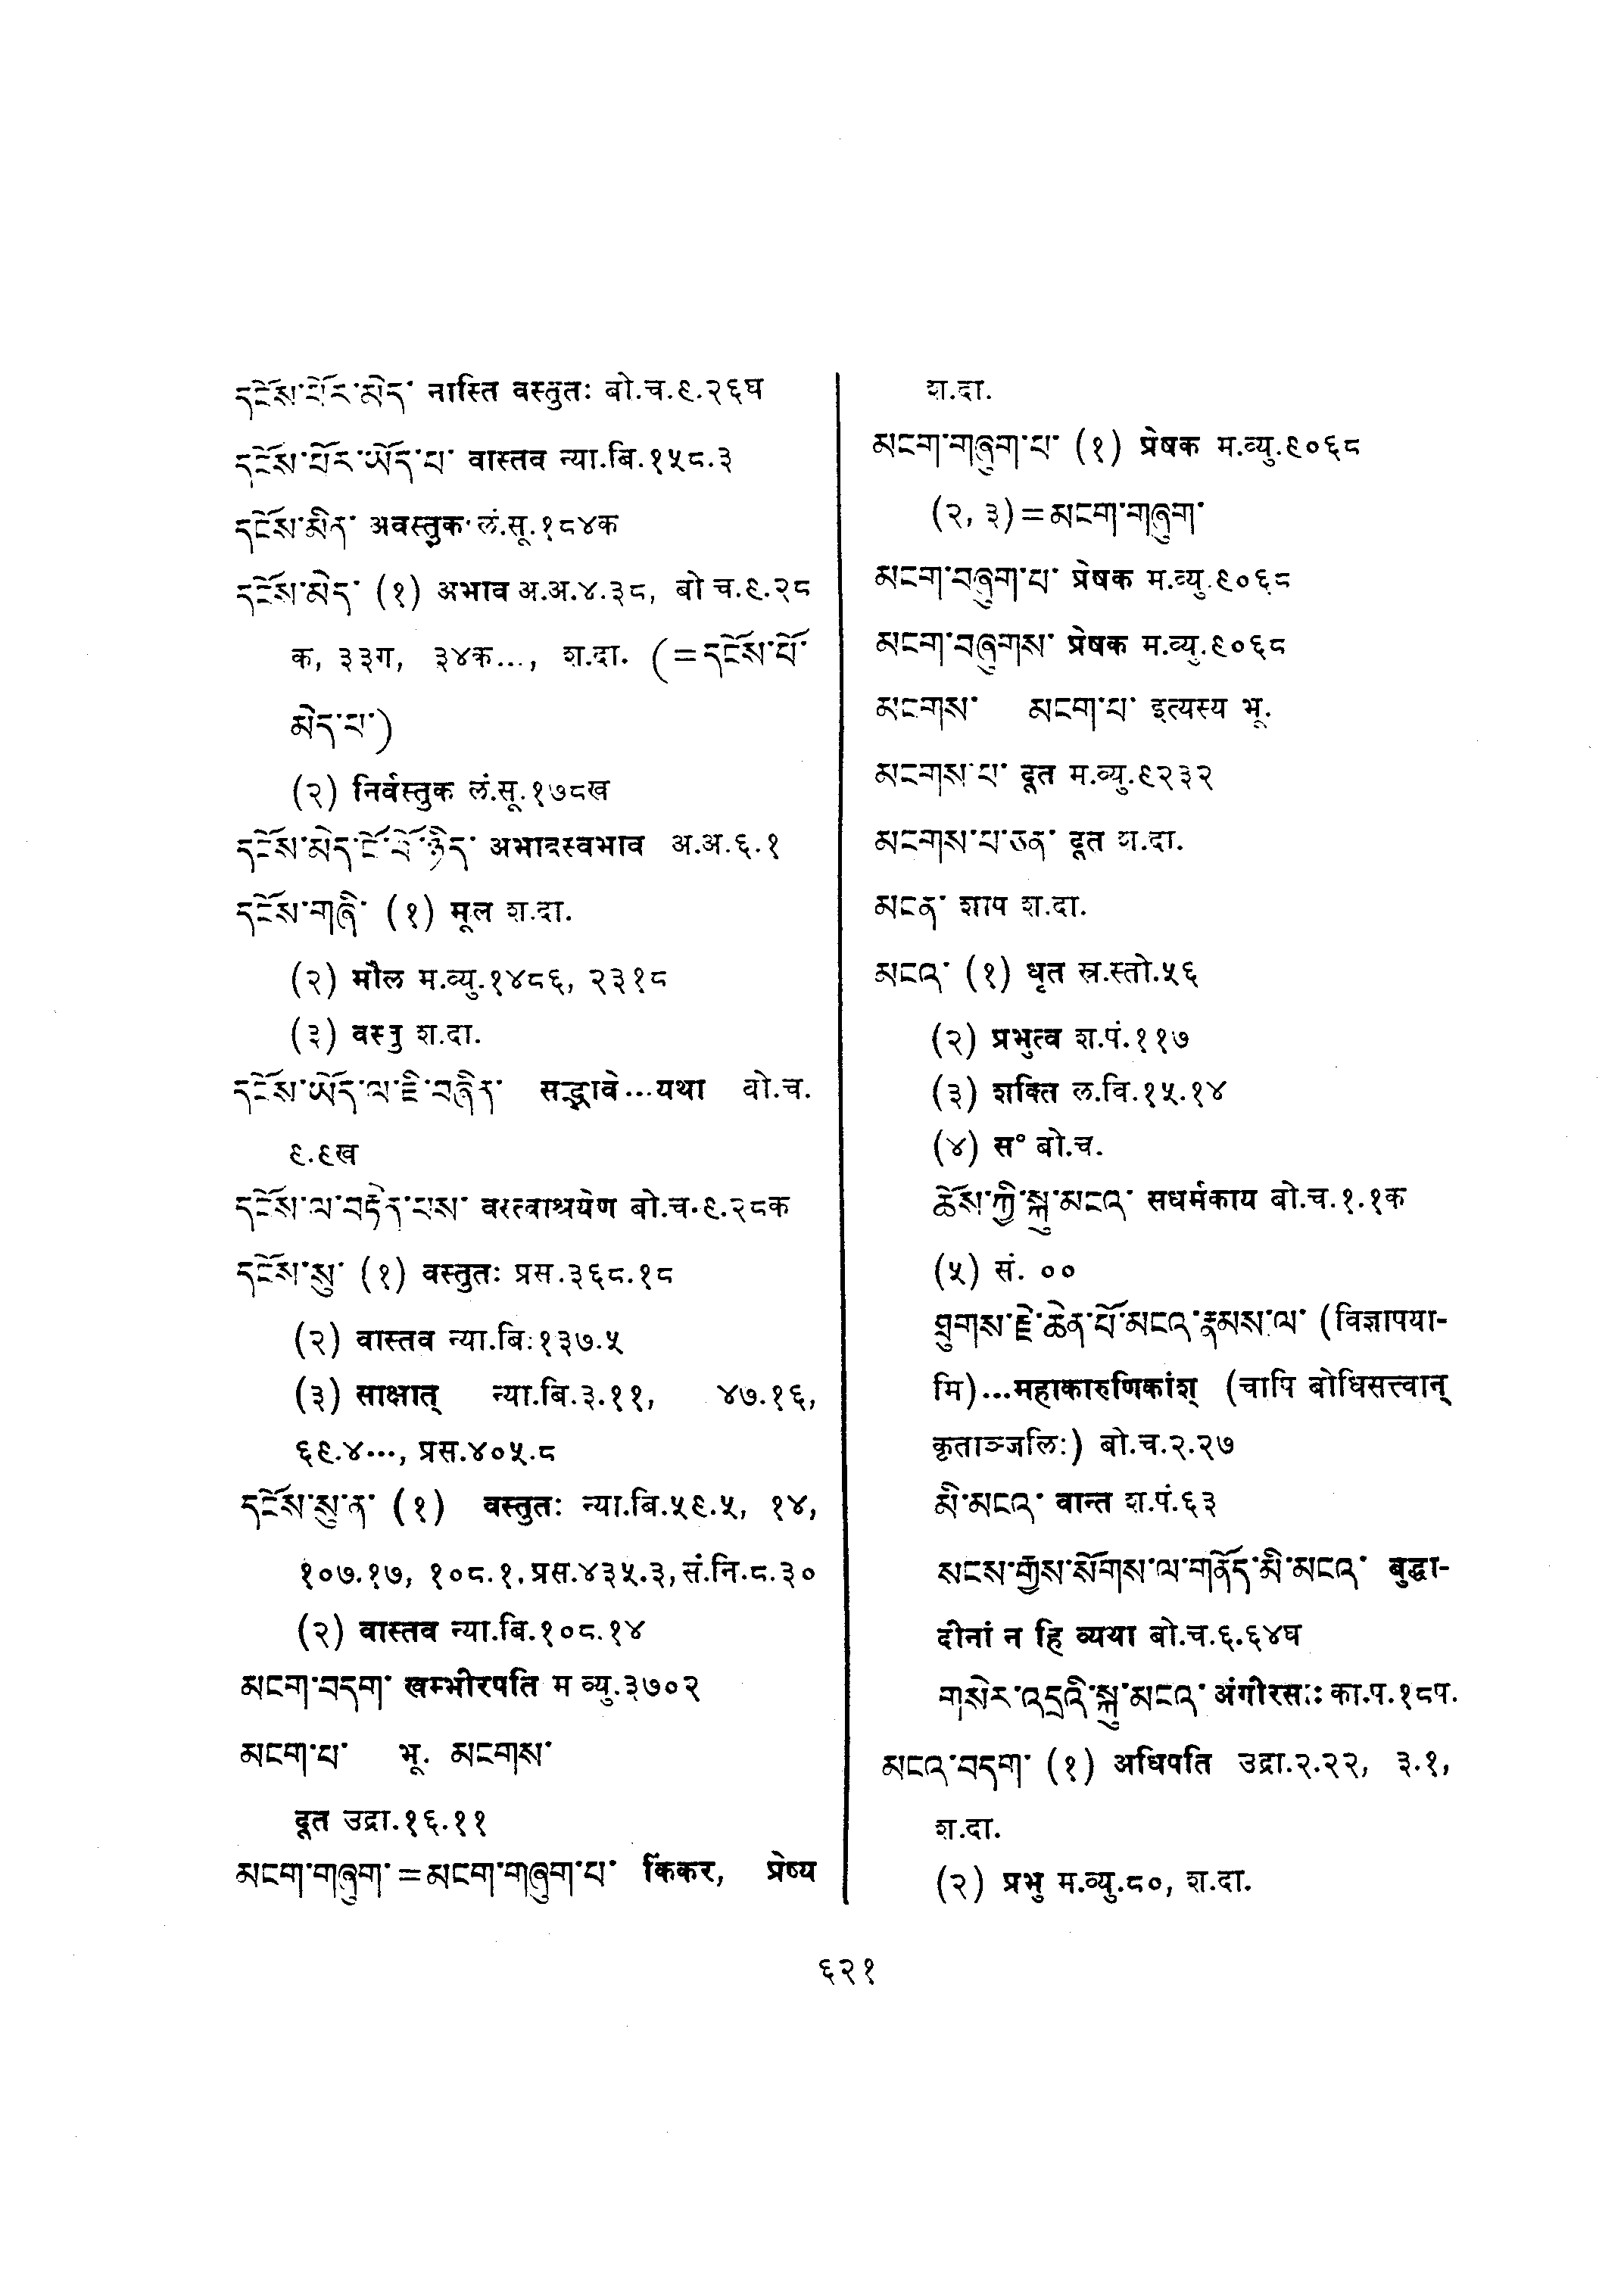 དངོས་པོར་མེད་ नास्ति वस्तुतः बो.च.९.२६घ
དངོས་པོར་ཡོད་པ་ वास्तव न्या.बि.१५८.३
དངོས་མིན་ अवस्तुक लं.सू.१८४क
དངོས་མེད་ (१) अभाव अ.अ.४.३८, बो च.९.२८
क, ३३ग, ३४क..., श.दा. (=དངོས་པོ་
མེད་པ་)
(२) निर्वस्तुक लं.सू.१७८ख
དངོས་མེད་ངོ་བོ་ཉིད་ अभावस्वभाव अ.अ.६.१
དངོས་གཞི་ (१) मूल श.दा.
(२) मौल म.व्यु.१४८६, २३१८
(३) वस्तु श.दा.
དངོས་ཡོད་ལ་ཇི་བཞིན་ सद्भावे...यथा बो.च.
९.९ख
དངོས་ལ་བརྟེན་པས་ वस्त्वाश्रयेण बो.च.९.२८क
དངོས་སུ་ (१) वस्तुतः प्रस.३६८.१८
(२) वास्तव न्या.बि.१३७.५
(३) साक्षात् न्या.बि.३.११, ४७.१६,
६९.४..., प्रस.४०५.८
དངོས་སུ་ན་ (१) वस्तुतः न्या.बि.५९.५, १४,
१०७.१७, १०८.१, प्रस.४३५.३, सं.नि.८.३०
(२) वास्तव न्या.बि.१०८.१४
མངག་བདག་ खम्भीरपति म व्यु.३७०२
མངག་པ་ भू. མངགས་
दूत उद्रा.१६.११
མངག་གཞུག་=མངག་གཞུག་པ་ किंकर, प्रेष्य
श.दा.
མངག་གཞུག་པ་ (१) प्रेषक म.व्यु.९०६८
(२, ३)=མངག་གཞུག་
མངག་བཞུག་པ་ प्रेषक म.व्यु.९०६८
མངག་བཞུགས་ प्रेषक म.व्यु.९०६८
མངགས་ མངག་པ་ इत्यस्य भू.
མངགས་པ་ दूत म.व्यु.९२३२
མངགས་པ་ཅན་ दूत श.दा.
མངན་ शाप श.दा.
མངའ་ (१) धृत स्र.स्तो.५६
(२) प्रभुत्व श.पं.११७
(३) शक्ति ल.वि.१५.१४
(४) स° बो.च.
ཆོས་ཀྱི་སྐུ་མངའ་ सधर्मकाय बो.च.१.१क
(५) सं. ००
ཐུགས་རྗེ་ཆེན་པོ་མངའ་རྣམས་ལ་ (विज्ञापया-
मि)...महाकारुणिकांश् (चापि बोधिसत्त्वान्
कृताञ्जलिः) बो.च.२.२७
མི་མངའ་ वान्त श.पं.६३
སངས་རྒྱས་སོགས་ལ་གནོད་མི་མངའ་ बुद्धा-
दीनां न हि व्यथा बो.च.६.६४घ
གསེར་འདྲའི་སྐུ་མངའ་ अंगीरसः: का.प.१८प.
མངའ་བདག་ (१) अधिपति उद्रा.२.२२, ३.१,
श.दा.
(२) प्रभु म.व्यु.८०, श.दा.
६२१